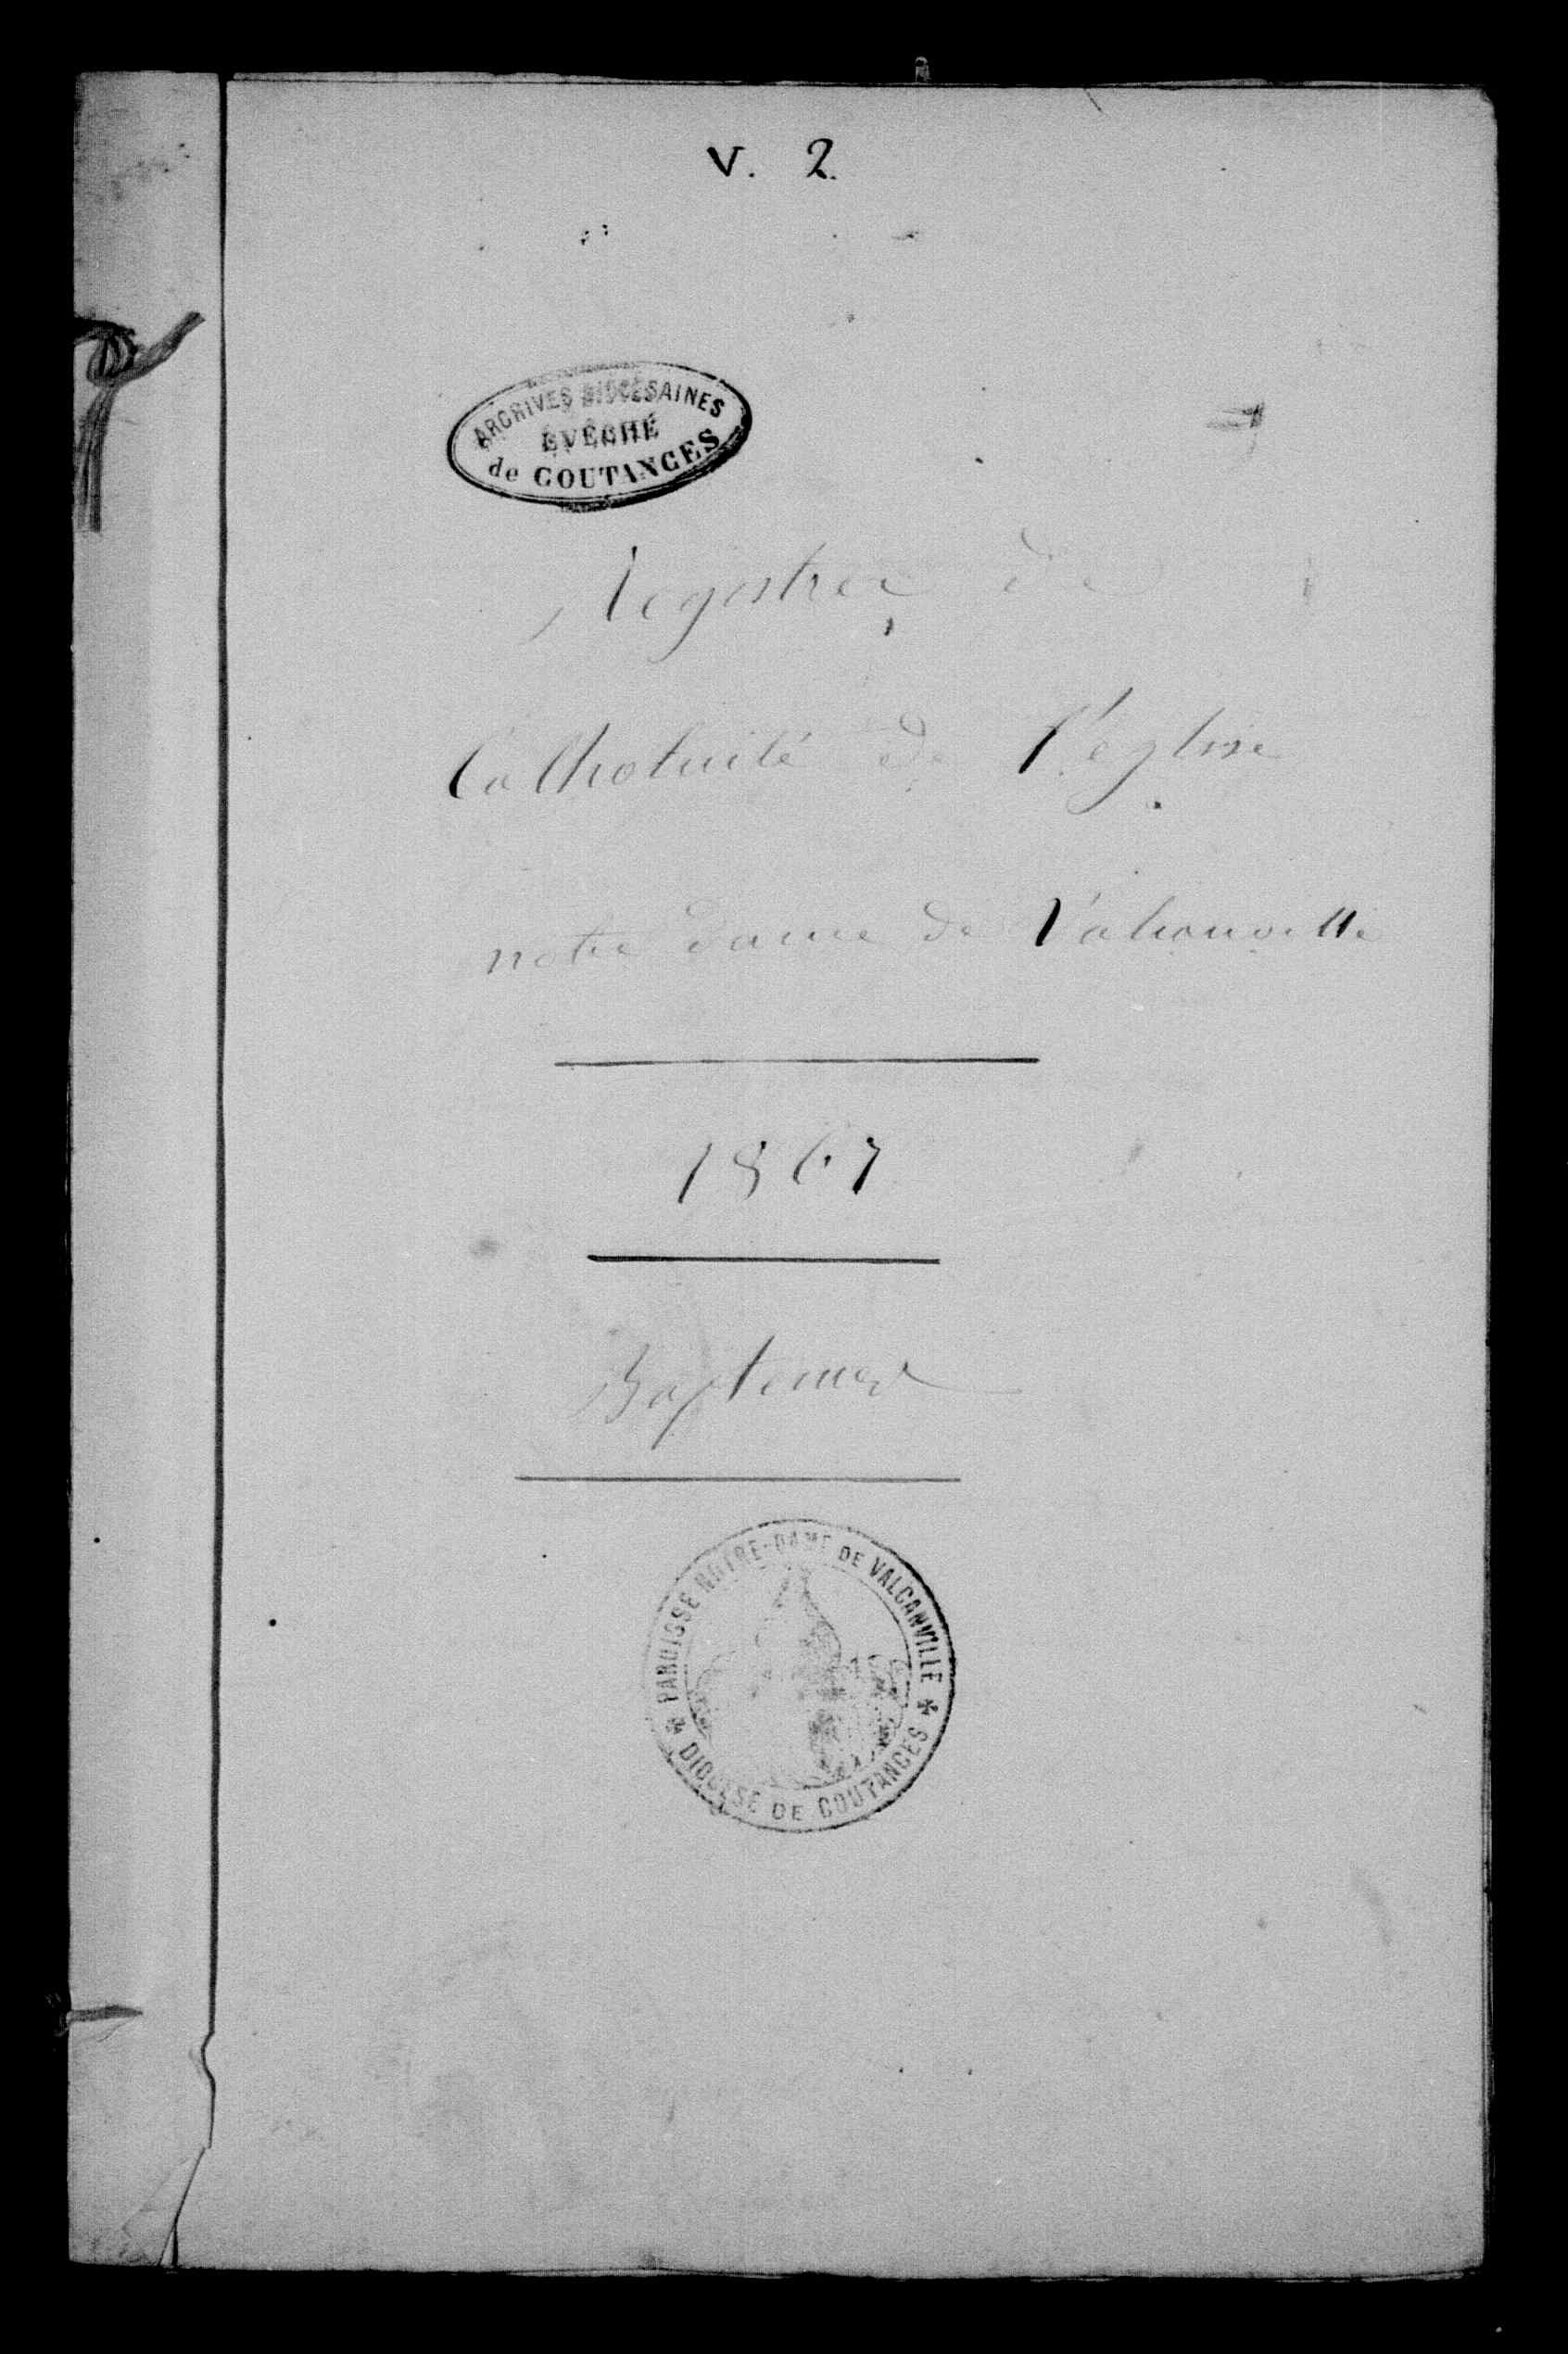 V. 2.
ARCHIVES DIOCÉSAINES
ÉVÊCHÉ
de COUTANCES
Registres de
Catholicité de l'église
notre dame de Valcanville
1867
Baptemes
PAROISSE NOTRE-DAME DE VALCANVILLE
DIOCESE DE COUTANCES